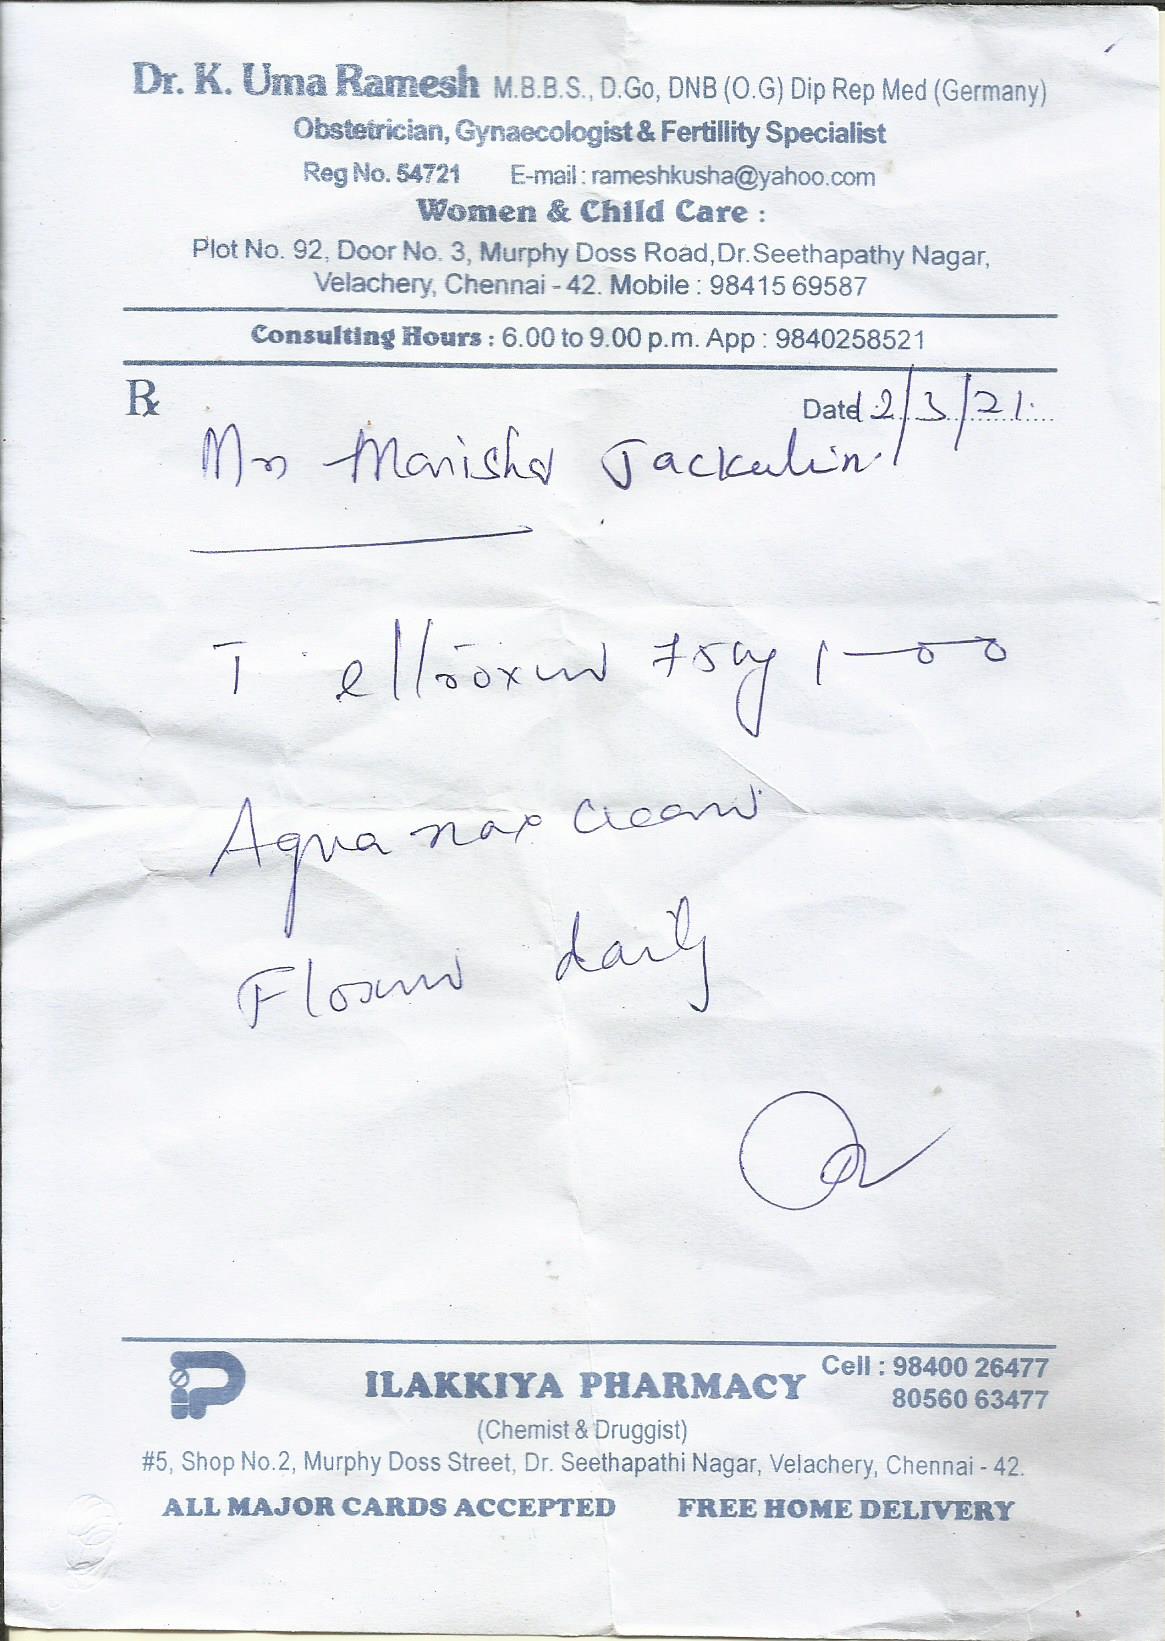 Dr. K. Uma Ramesh M.B.B.S., D.Go, DNB (O.G) Dip Rep Med (Germany)
Obstetrician, Gynaecologist & Fertillity Specialist
Reg No. 54721 E-mail : rameshkusha@yahoo.com
Women & Child Care :
Plot No. 92, Door No. 3, Murphy Doss Road,Dr.Seethapathy Nagar,
Velachery, Chennai - 42. Mobile : 98415 69587
Consulting Hours : 6.00 to 9.00 p.m. App : 9840258521
Rx Date 12/3/21
Mrs Manisha Jackulin
T elltroxin 75mg 1-00
Aqua max cream
daily
ILAKKIYA PHARMACY Cell : 98400 26477
80560 63477
(Chemist & Druggist)
#5, Shop No.2, Murphy Doss Street, Dr. Seethapathi Nagar, Velachery, Chennai - 42.
ALL MAJOR CARDS ACCEPTED FREE HOME DELIVERY